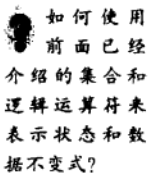 如何使用
前面已经
介绍的集合和
逻辑运算符来
表示状态和数
据不变式?